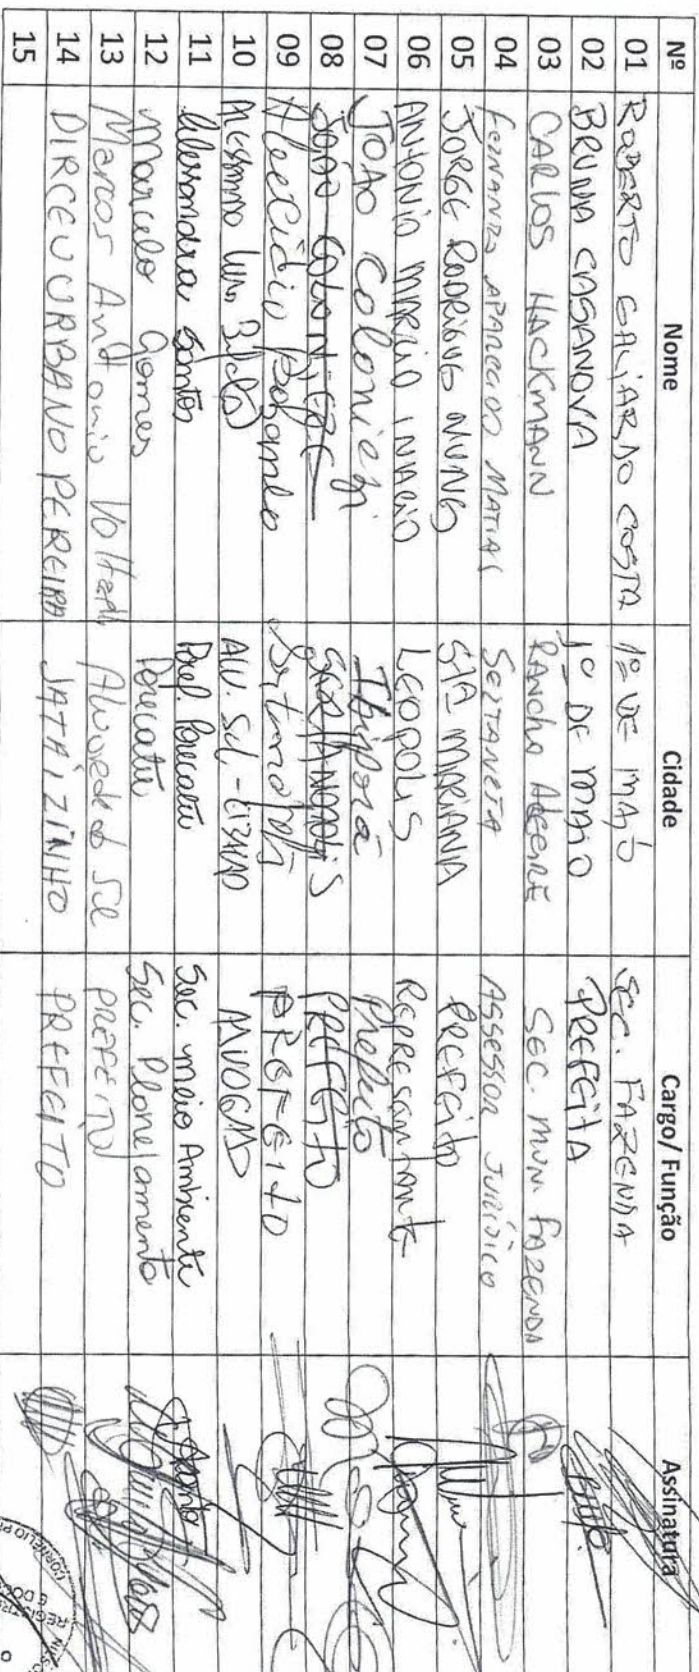 Nº Nome Cidade Cargo/ Função Assinatura
01 ROBERTO GALIARDO COSTA 1º DE MAIO SEC. FAZENDA
02 BRUNA CASANOVA 1º DE MAIO PREFEITA
03 CARLOS HACKMANN RANCHO ALEGRE SEC. MUN FAZENDA
04 FERNANDO APARECIDO MATIAS SERTANEJA ASSESSOR JURÍDICO
05 JORGE RODRIGUES NUNES STA MARIANA PREFEITO
06 ANTONIO MARCIO INACIO LEOPOLIS REPRESANTANTE
07 JOÃO COLONIEZI Ibiporã Prefeito
08 JOÃO PREFEITO
09 Alecidio Sertanópolis PREFEITO
10 ALV. SUL
11 Alessandra Santos Pref. Porecatu Sec. meio Ambiente
12 Marcelo Gomes Porecatu Sec. Planejamento
13 Marcos Antonio Voltarelli Alvorada do Sul PREFEITO
14 DIRCEU URBANO PEREIRA JATAIZINHO PREFEITO
15